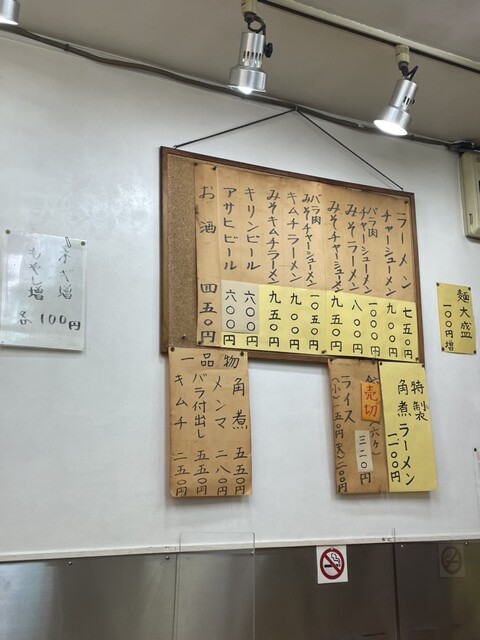 ラーメン 七五〇円
チャーシューメン 九〇〇円
バラ肉チャーシューメン 一〇〇〇円
みそラーメン 八〇〇円
みそチャーシューメン 九五〇円
バラ肉みそチャーシューメン 一〇五〇円
キムチラーメン 九〇〇円
みそキムチラーメン 九五〇円
キリンビール 六〇〇円
アサヒビール 六〇〇円
お酒 四五〇円
麺大盛
一〇〇円増
特製
角煮ラーメン 一一〇〇円
売切
(六ヶ)
三二〇円
ライス
(小)一五〇円(大)二〇〇円
一品物
角煮 五五〇円
メンマ 二八〇円
バラ付出し 五五〇円
キムチ 二五〇円
ネギ増
もやし増
各100円